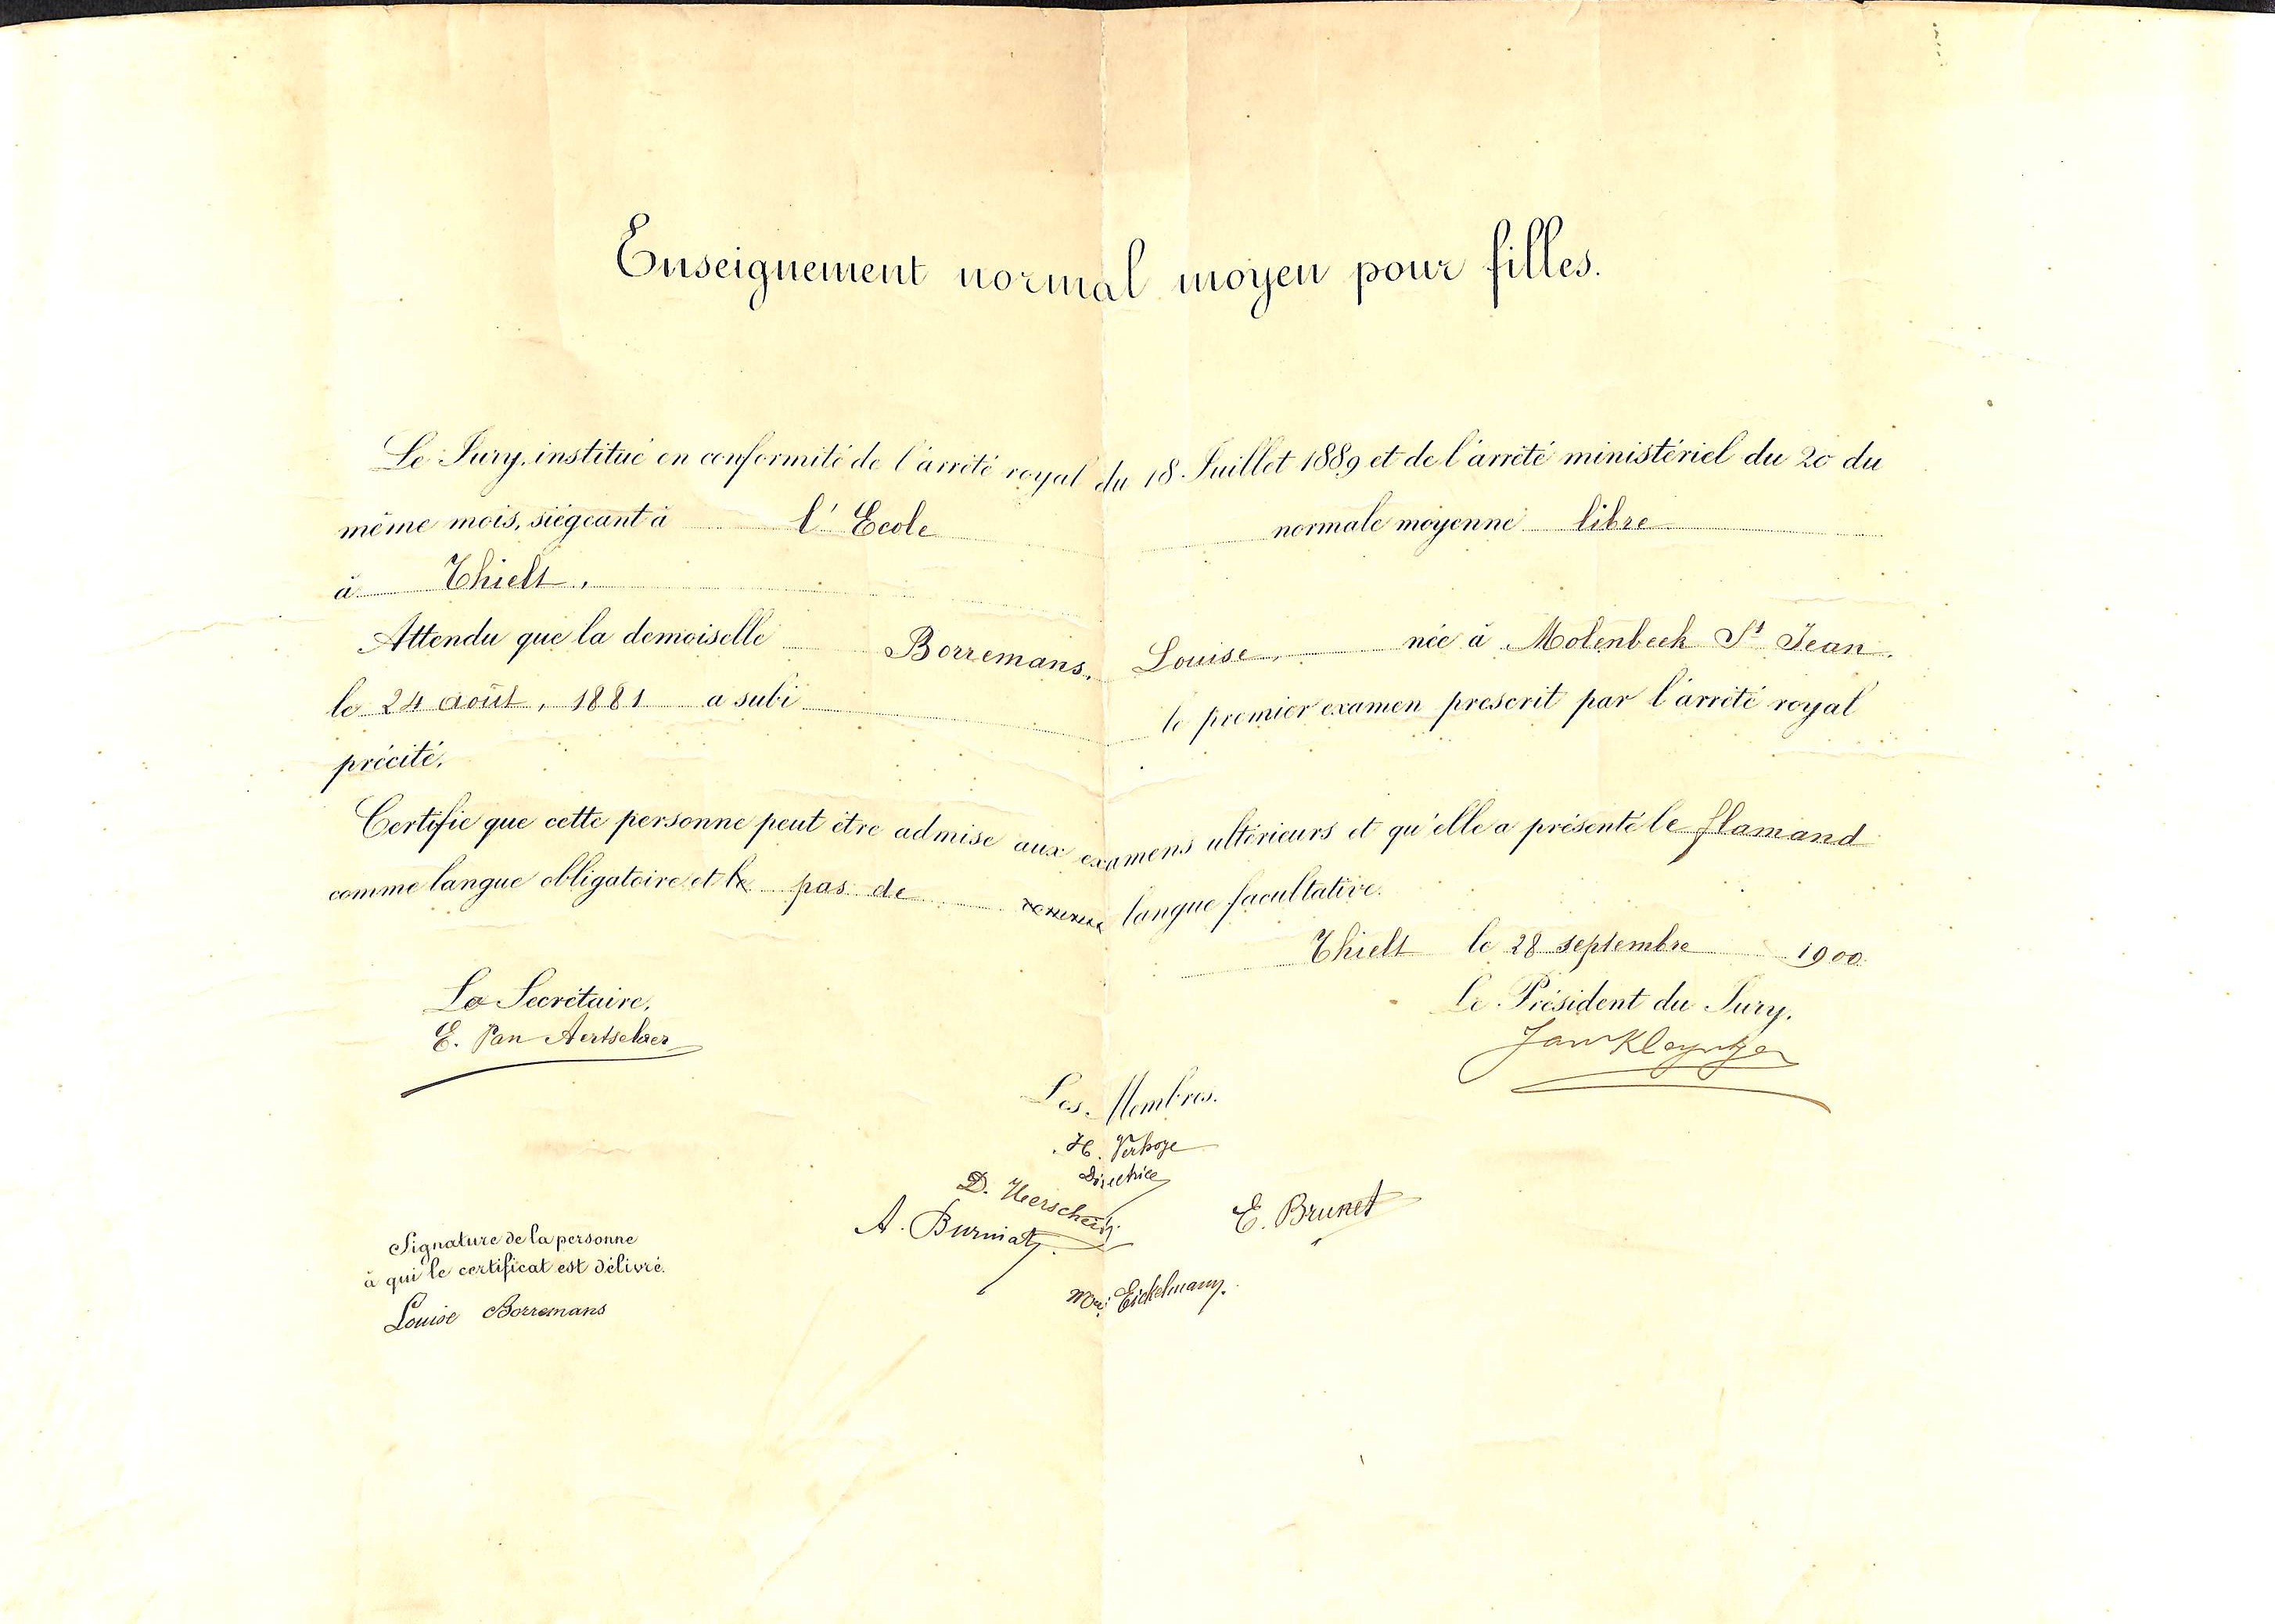 Enseignement normal moyen pour filles.
Le Jury, institué en conformité de l'arrêté royal du 18 Juillet 1889 et de l'arrêté ministériel du 20 du
même mois, siégeant à l'Ecole normale moyenne libre
à Thielt,
Attendu que la demoiselle Borremans, Louise, née à Molenbeek St Jean,
le 24 août, 1881 a subi le premier examen prescrit par l'arrêté royal
précité,
Certifie que cette personne peut être admise aux examens ultérieurs et qu'elle a présenté le flamand
comme langue obligatoire et le pas de comme langue facultative.
Thielt le 28 septembre 1900.
La Secrétaire,
E. Van Aertselaer
Le Président du Jury,
Les Membres.
H. Verhoye
Directrice
D. 
A. Burniat
E. Brunet
Eickelmann.
Signature de la personne
à qui le certificat est délivré.
Louise Borremans